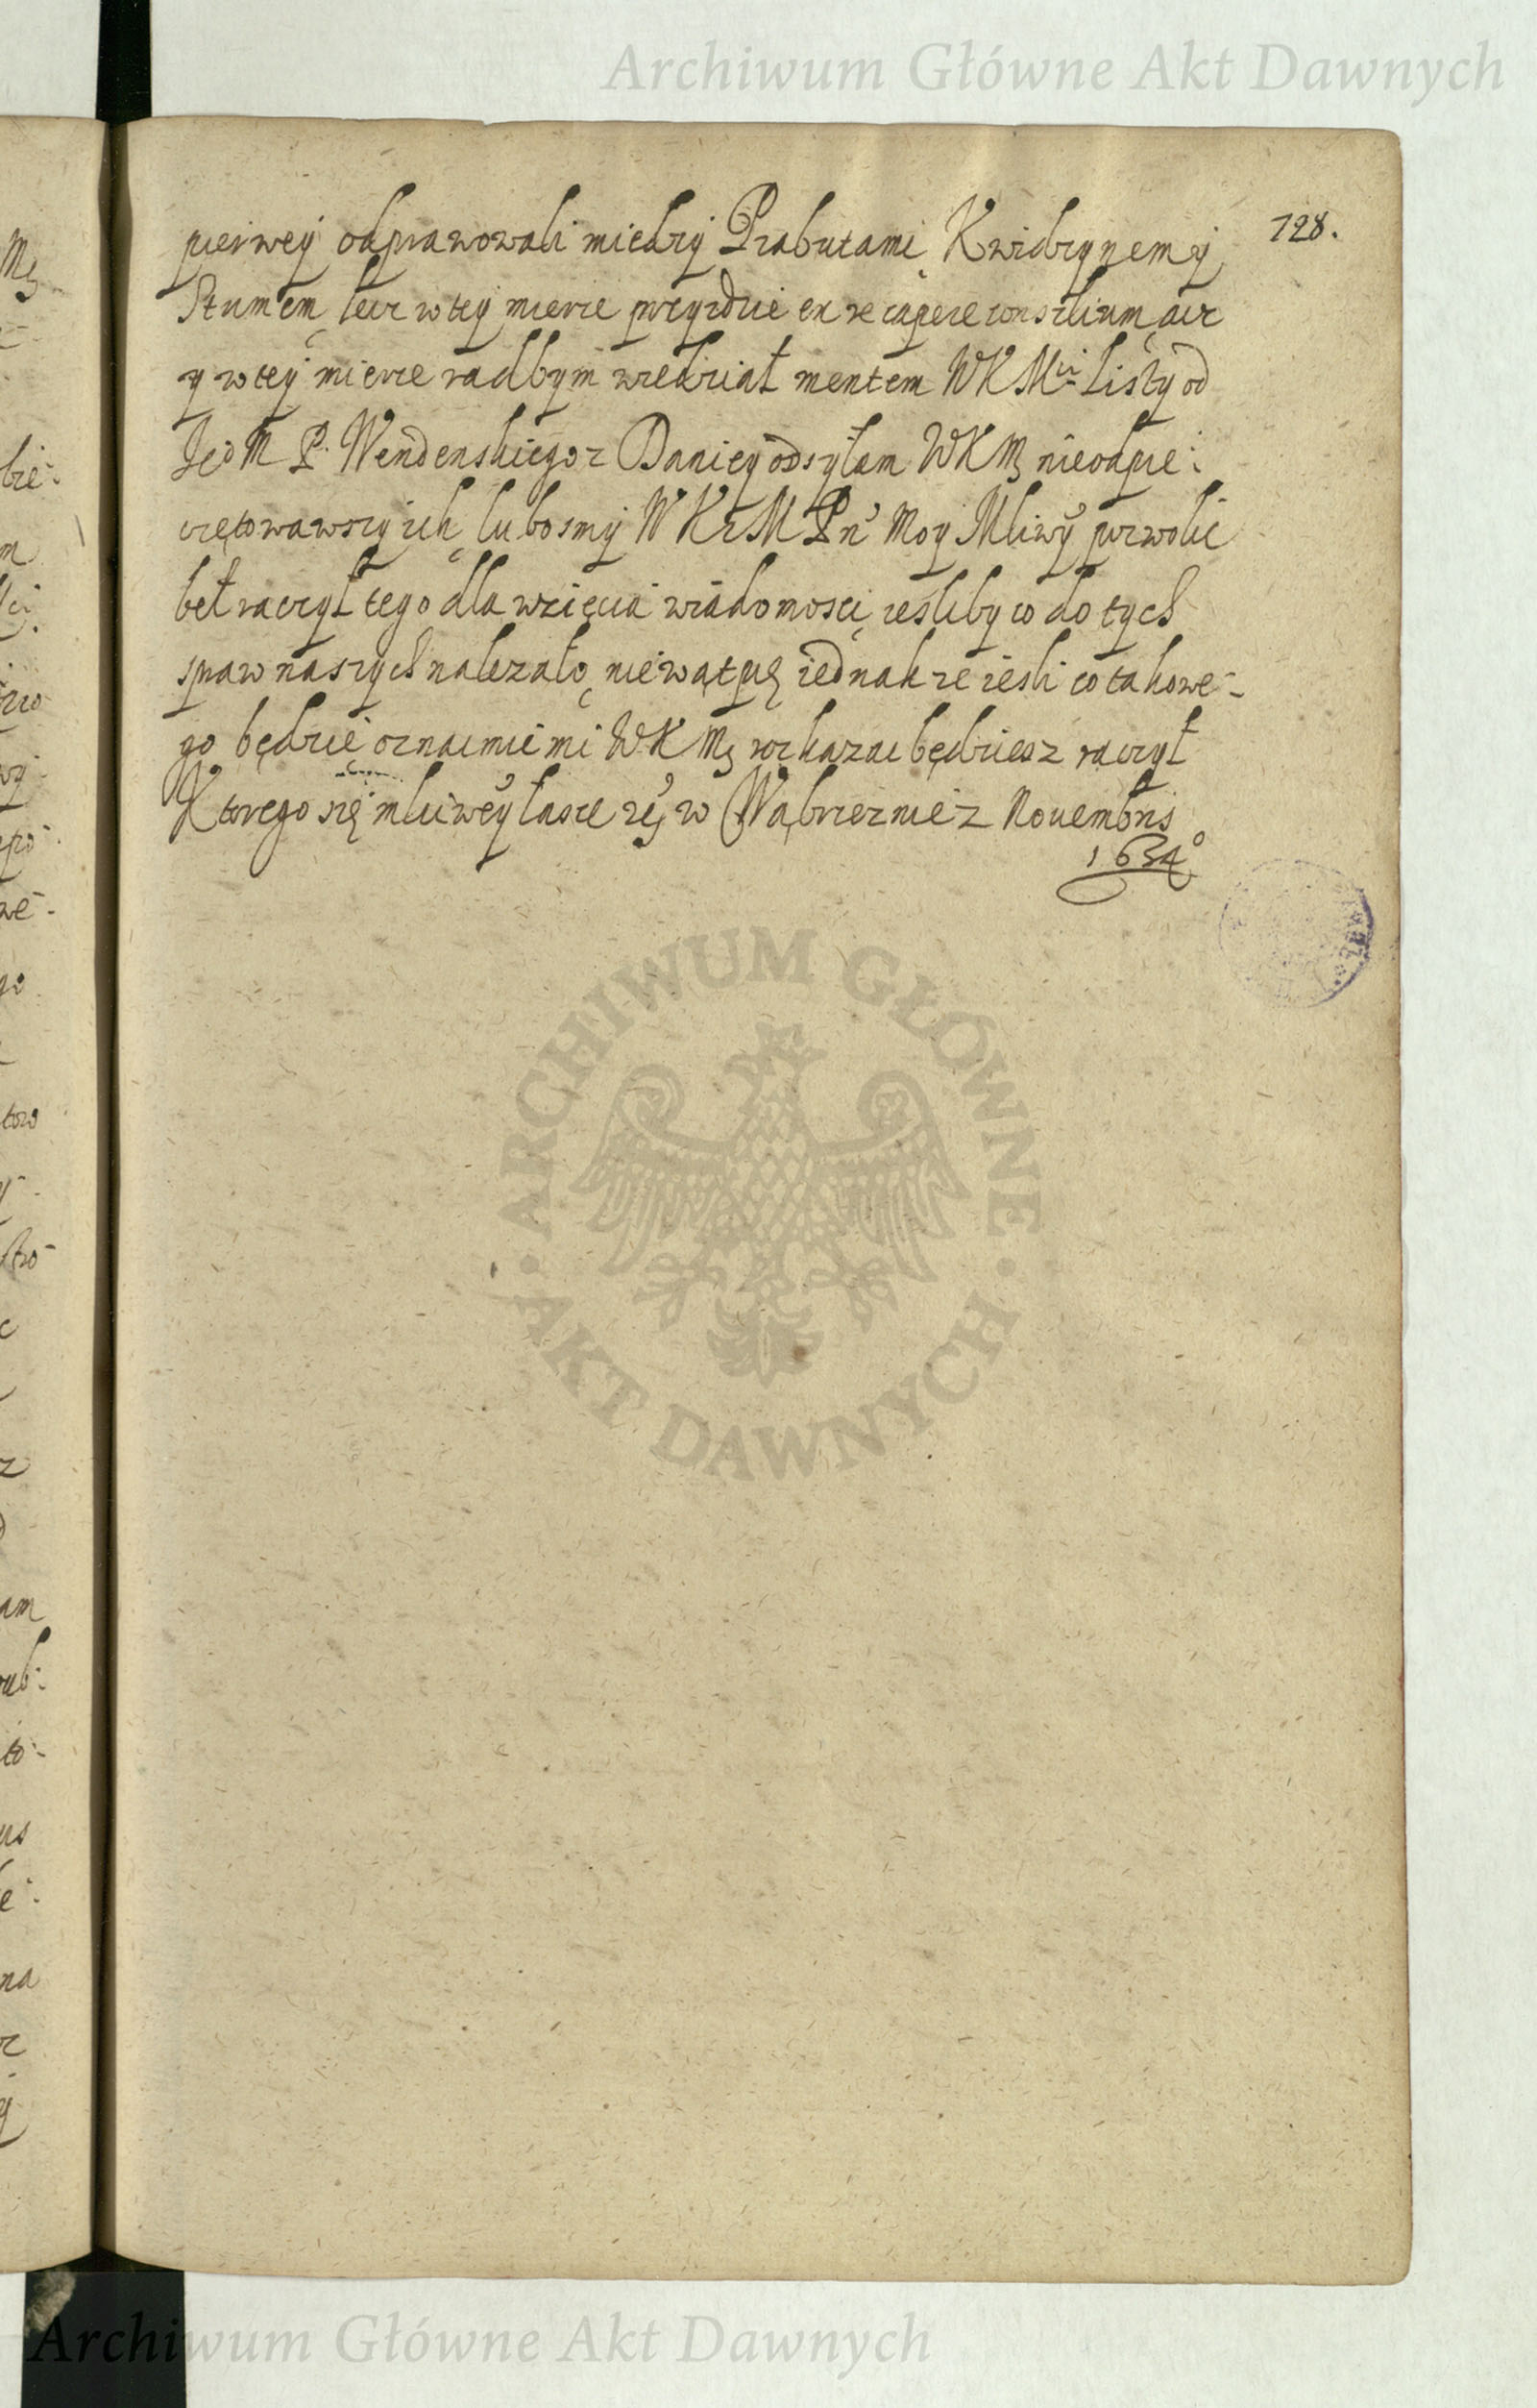 Archiwum Główne Akt Dawnych
128.
pierwey odprawowali miedzy Prabutami Kwidzynem y
Stumem, lecz w tey mierze przyidzie ex re capere consilium, acz
y w tey mierze radbym wiedział mentem WKMci Listy od
Je͠o M P. Wendenskiego z Daniey odsyłam WKM nieodpie-
czętowawszy ich, lubo smy WKM Pn Moy Mliwy pozwolić
beł raczył tego dla wzięcia wiadomosci, iesliby co do tych
spraw naszych nalezało, niewątpię iednak ze iesli co takowe-
go będzie oznaimić mi WKM rozkazac będziesz raczył
Ktorego się mliwey łasce w Wąbrzeznie 2 Nouembris
1634°
ARCHIWUM GŁÓWNE
AKT DAWNYCH
Archiwum Główne Akt Dawnych